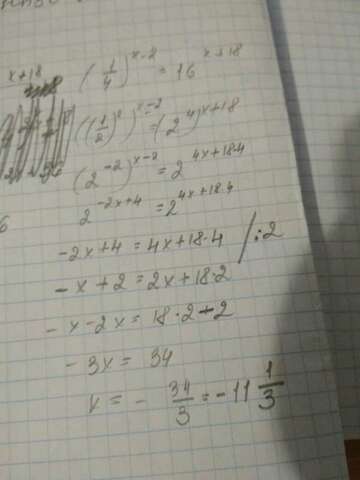 x+18
(1/4)^(x-2) = 16^(x+18)
((1/2)^2)^(x-2) = (2^4)^(x+18)
(2^(-2))^(x-2) = 2^(4x+18·4)
2^(-2x+4) = 2^(4x+18·4)
-2x+4 = 4x+18·4 /:2
-x+2 = 2x+18·2
-x-2x = 18·2-2
-3x = 34
x = -34/3 = -11 1/3
6